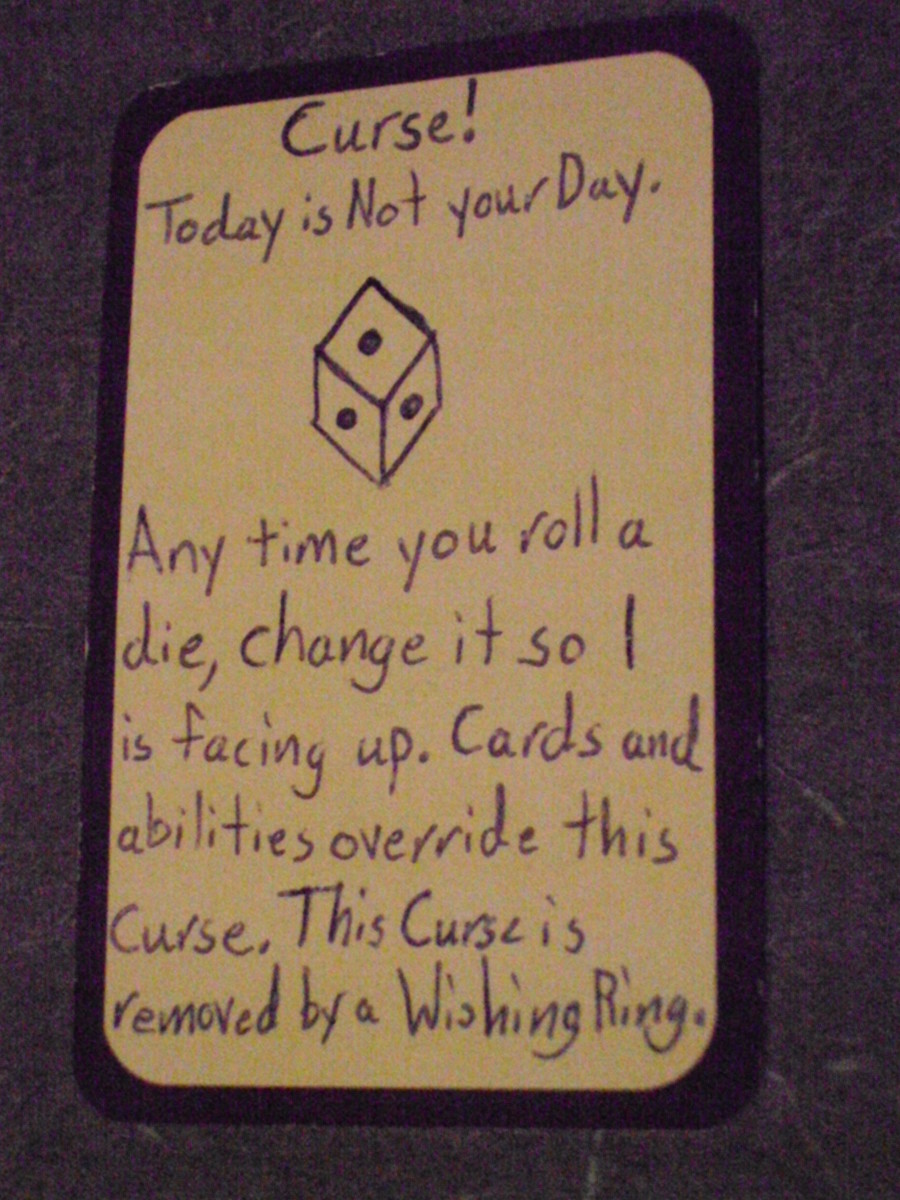 Curse!
Today is Not your Day.
Any time you roll a
die, change it so 1
is facing up. Cards and
abilities override this
Curse. This Curse is
removed by a Wishing Ring.